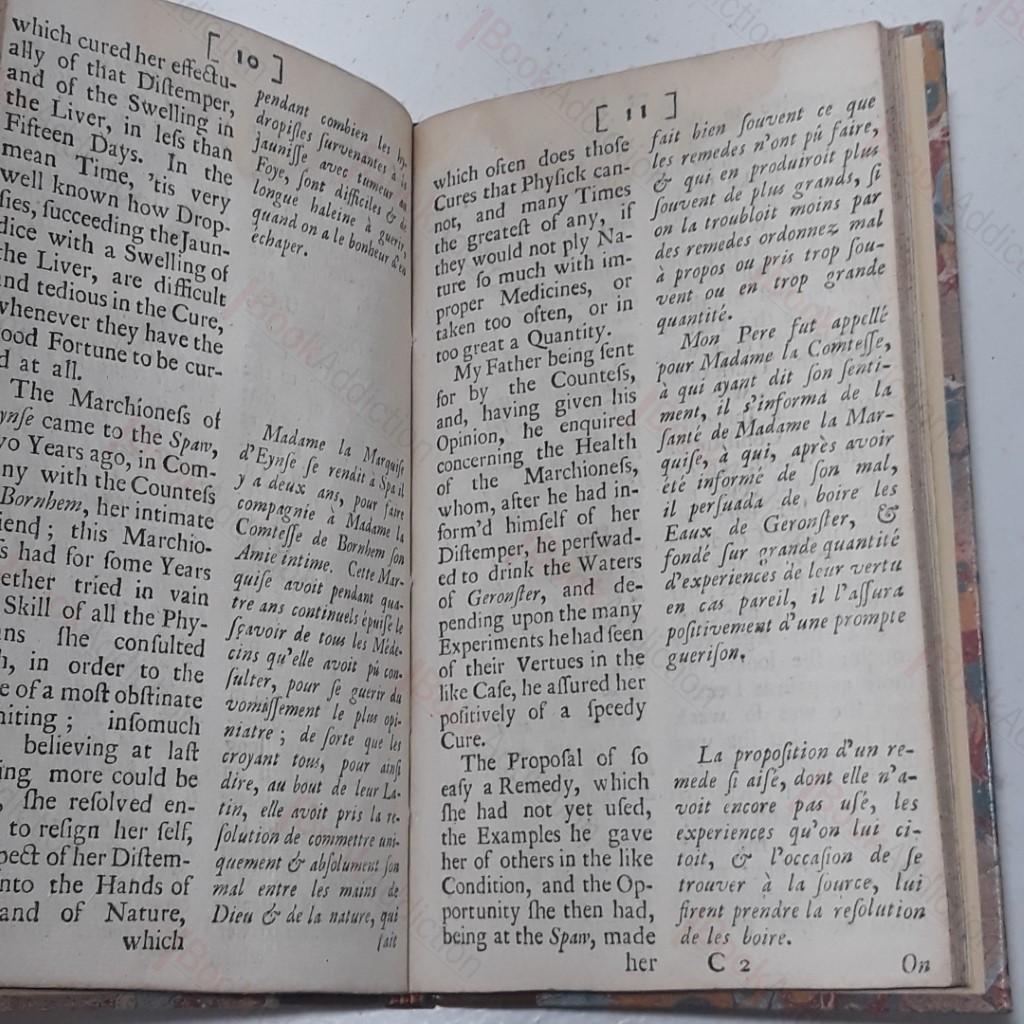 [ 10 ]
which cured her effectu-
ally of that Diſtemper,
and of the Swelling in
the Liver, in leſs than
Fifteen Days. In the
mean Time, 'tis very
well known how Drop-
ſies, ſucceeding the Jaun-
dice with a Swelling of
the Liver, are difficult
and tedious in the Cure,
whenever they have the
ood Fortune to be cur-
d at all.
The Marchioneſs of
ynſe came to the Spaw,
wo Years ago, in Com-
ny with the Counteſs
Bornhem, her intimate
iend; this Marchio-
ſs had for ſome Years
ether tried in vain
Skill of all the Phy-
ans ſhe conſulted
h, in order to the
e of a moſt obſtinate
miting; inſomuch
believing at laſt
ing more could be
, ſhe reſolved en-
to reſign her ſelf,
pect of her Diſtem-
nto the Hands of
and of Nature,
which
pendant combien les hy-
dropiſies ſurvenantes à la
jauniſſe avec tumeur au
Foye, ſont difficiles & de
longue haleine à guerir,
quand on a le bonheur d'en
échaper.
Madame la Marquiſe
d'Eynſe ſe rendit à Spa il
y a deux ans, pour faire
compagnie à Madame la
Comteſſe de Bornhem ſon
Amie intime. Cette Mar-
quiſe avoit pendant qua-
tre ans continuels épuiſé le
ſçavoir de tous les Méde-
cins qu'elle avoit pû con-
ſulter, pour ſe guerir du
vomiſſement le plus opi-
niatre; de ſorte que les
croyant tous, pour ainſi
dire, au bout de leur La-
tin, elle avoit pris la re-
ſolution de commettre uni-
quement & abſolument ſon
mal entre les mains de
Dieu & de la nature, qui
fait
[ 11 ]
which often does thoſe
Cures that Phyſick can-
not, and many Times
the greateſt of any, if
they would not ply Na-
ture ſo much with im-
proper Medicines, or
taken too often, or in
too great a Quantity.
My Father being ſent
for by the Counteſs,
and, having given his
Opinion, he enquired
concerning the Health
of the Marchioneſs,
whom, after he had in-
form'd himſelf of her
Diſtemper, he perſwad-
ed to drink the Waters
of Geronſter, and de-
pending upon the many
Experiments he had ſeen
of their Vertues in the
like Caſe, he aſſured her
poſitively of a ſpeedy
Cure.
The Propoſal of ſo
eaſy a Remedy, which
ſhe had not yet uſed,
the Examples he gave
her of others in the like
Condition, and the Op-
portunity ſhe then had,
being at the Spaw, made
her
fait bien ſouvent ce que
les remedes n'ont pû faire,
& qui en produiroit plus
ſouvent de plus grands, ſi
on la troubloit moins par
des remedes ordonnez mal
à propos ou pris trop ſou-
vent ou en trop grande
quantité.
Mon Pere fut appellé
pour Madame la Comteſſe,
à qui ayant dit ſon ſenti-
ment, il s'informa de la
ſanté de Madame la Mar-
quiſe, à qui, après avoir
été informé de ſon mal,
il perſuada de boire les
Eaux de Geronſter, &
fondé ſur grande quantité
d'experiences de leur vertu
en cas pareil, il l'aſſura
poſitivement d'une prompte
gueriſon.
La propoſition d'un re-
mede ſi aiſé, dont elle n'a-
voit encore pas uſé, les
experiences qu'on lui ci-
toit, & l'occaſion de ſe
trouver à la ſource, lui
firent prendre la reſolution
de les boire.
C 2
On
BookAddiction